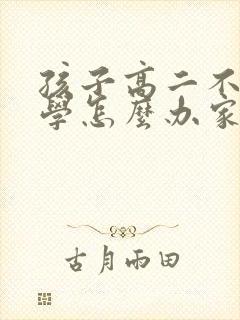 孩子高二不
學怎麼办家
古月雨田